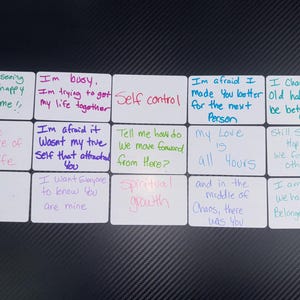 happy
me!!
I'm busy.
I'm trying to get
my life together
Self control
I'm afraid I
made You better
for the next
Person
Old ha
be bet
e of
fe.
I'm afraid it
Wasnt my true
Self that attracted
You
Tell me how do
we move forward
from Here?
My Love
is
all Yours
Still
I want Everyone
to know You
are mine
Spiritual
growth
and in the
middle of
Chaos, there
was You
Belong